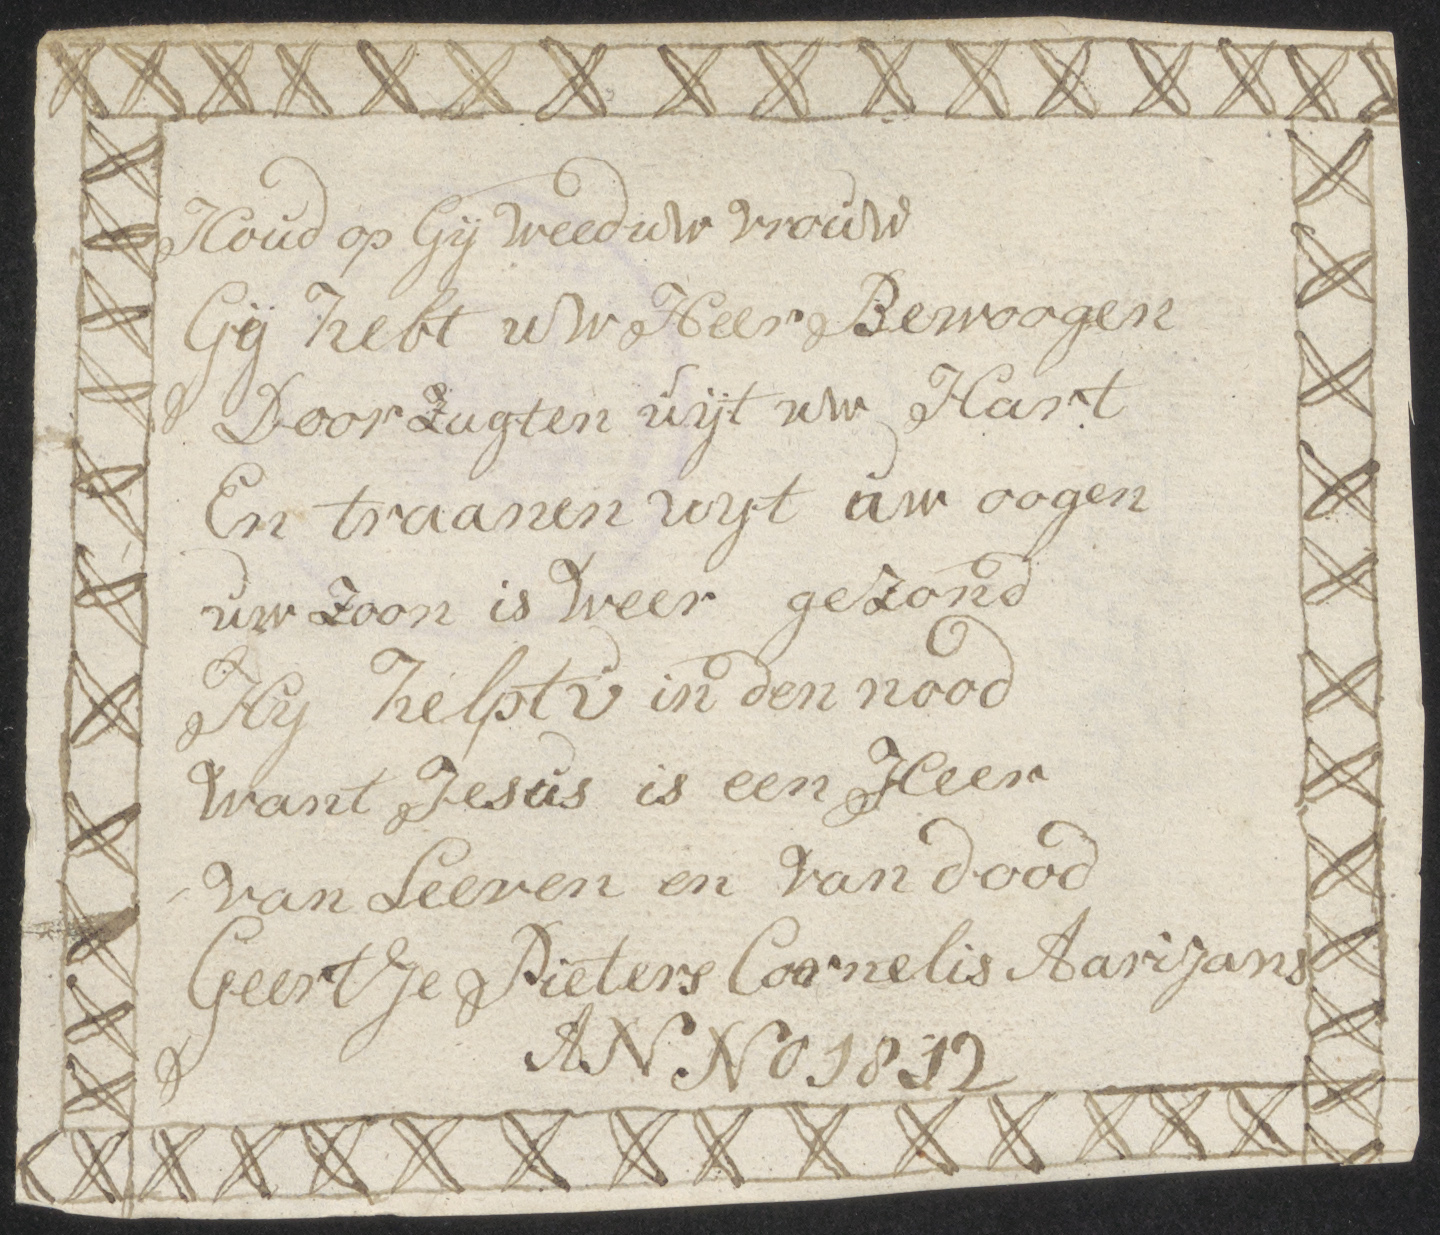 Houd op Gij Weeduw vrouw
Gij hebt uw Heer Bewoogen
Door Zugten uijt uw Hart
En traanen uyt uw oogen
uw Zoon is Weer gezond
Hy helpt u in den nood
Want Jesus is een Heer
van Leeven en van dood
Geertje Pieters Cornelis Aarijans
ANNO 1812